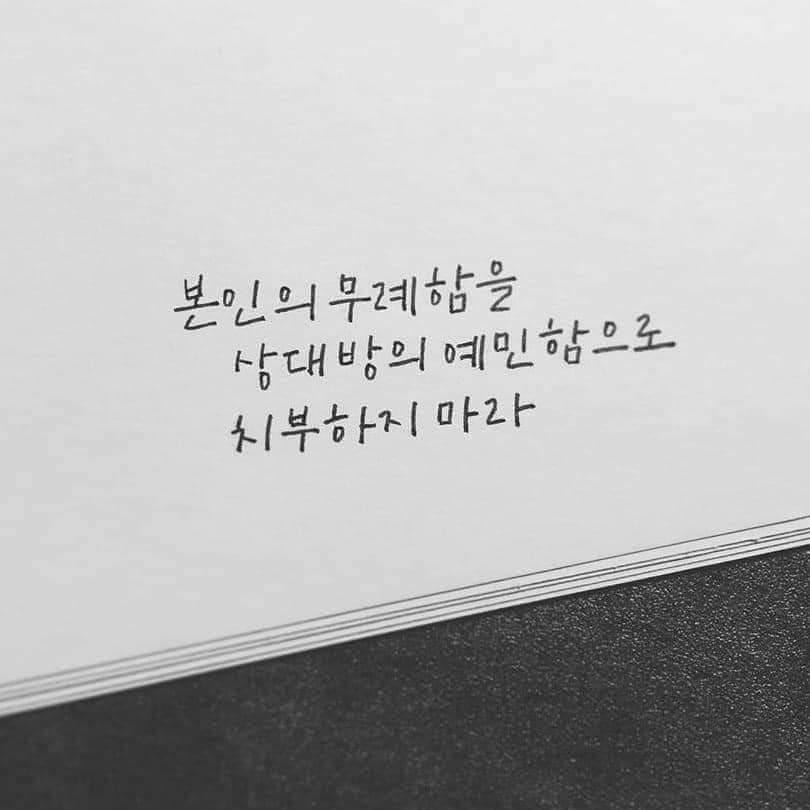 본인의 무례함을
상대방의 예민함으로
치부하지 마라